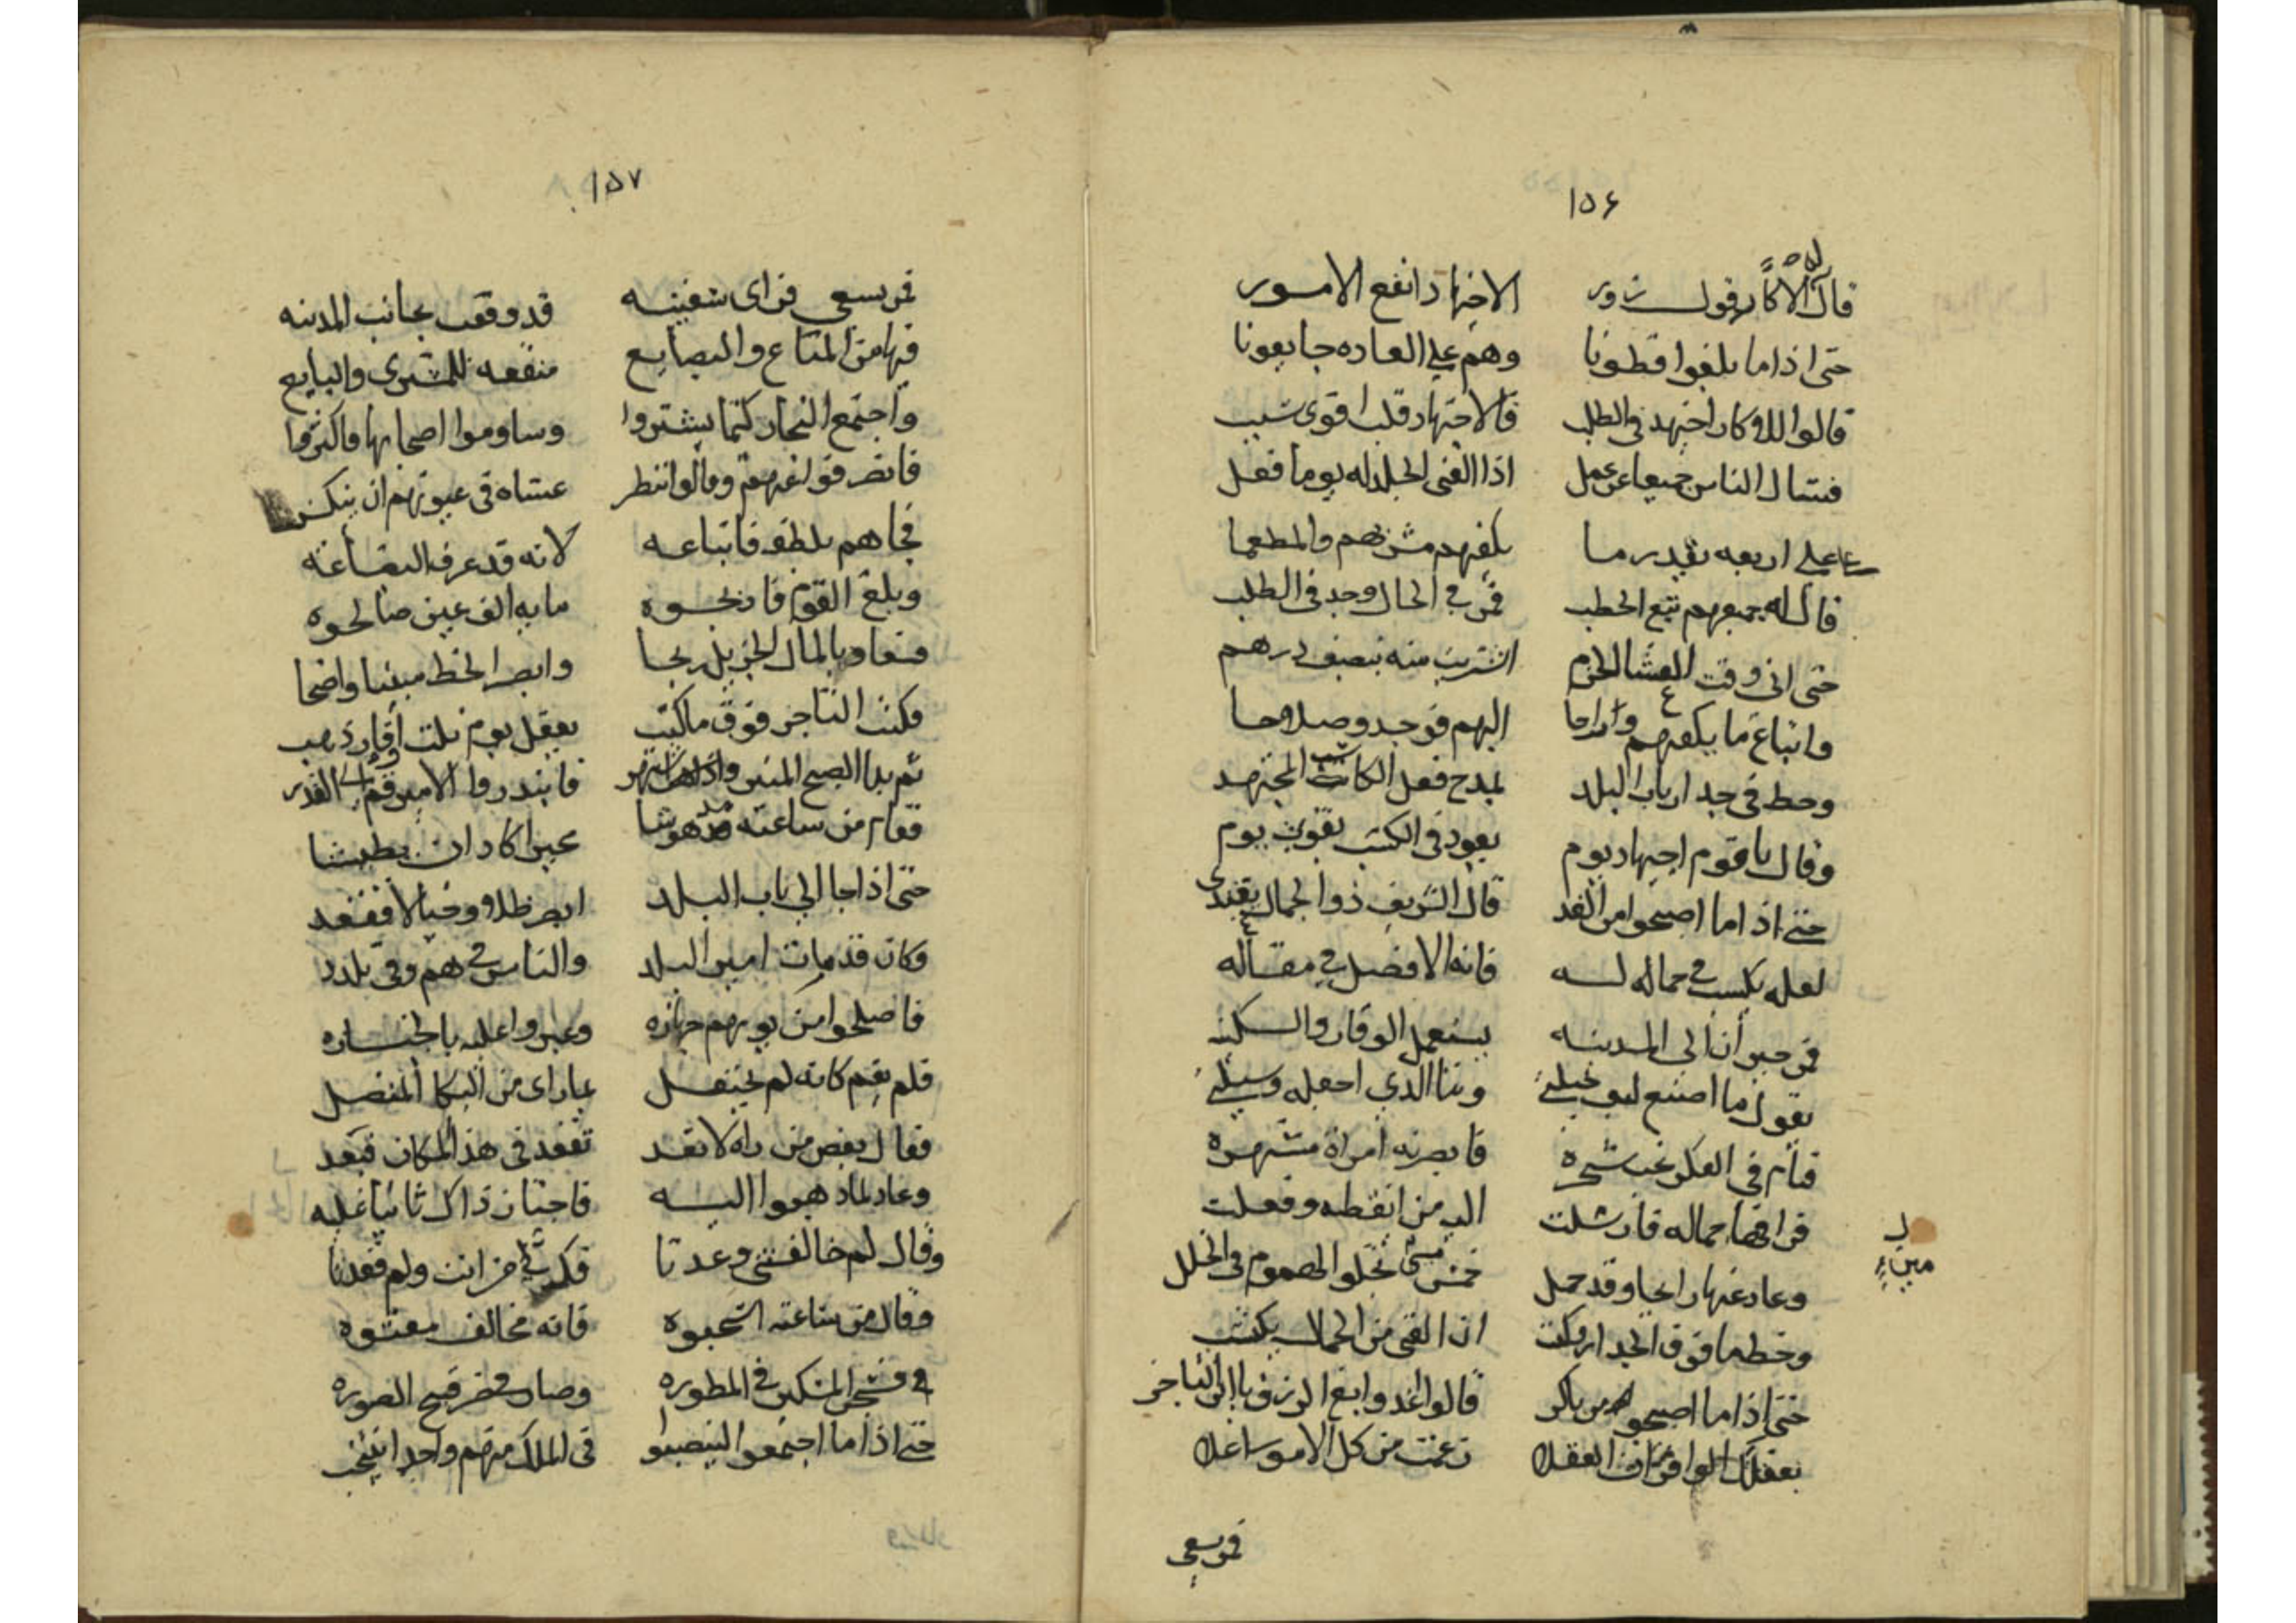 ١٥٦
قال الاكار قول زور الاجتهاد انفع الامور
حتى اذا ما بلغوا قطونا وهم على العاده جايعونا
قالوا للاكار اجتهد في الطلب فالاجتهاد قلت اقوى سبب
فسال الناس جميعا عن عمل اذا الفتى الجلد له يوما فعل
على اربعه بقدر ما يكفيهم مشربهم والمطعما
قال له جميعهم تبع الحطب فمر في الحال وجد في الطلب
حتى اتى وقت العشا اشتريت منه بنصف درهم
وابتاع ما يكفيهم وراحا اليهم فوجد وصلاحا
وحط في جدار باب البلد لمدح فعل الكاتب المجتهد
وقال يا قوم اجتهاد يوم يعود في الكسب بقوت يوم
حتى اذا ما اصبحوا من الغد قال الشريف ذو الجمال يقتدى
لعله يكسب في جماله له فانه الافضل في مقاله
فمر حيرانا الى المدينه يستعمل الوقار والسكينه
يقول ما اصنع ليو حيله وبنا الذي اجعله وسيله
فنام في الفكر تحت شجره فابصرته امراة مشتهره
فراقها جماله فارسلت اليه من وفعلت
وعاد عنها راجيا وقد حمل خمس مئى تخلو الهموم والخلل
وخطها فوق الجدار وكتب ان الفتى من الجمال يكتسب
حتى اذا ما اصبحوا من باكر قالوا اغد وابغ الرزق يا ابن التاجر
بعقلك الوافر ان العقلا زعمت من كل الامور اغلا
فمر يسعى
١٥٧
فمر يسعى فراى سفينه قد وقفت بجانب المدينه
فيها من المتاع والبضايع منفعه للمشترى والبايع
واجتمع التجار كيما يشتروا وساوموا اصحابها فاكثروا
فانصرفوا عنهم وقالوا ننتظر عساه في عيونهم ان ينكسر
فجاهم بلطفه فابتاعه لانه قد عرف البضاعه
وبلغ القوم فاربحوه مايه الف عين صالحوه
فعاد بالمال الجزيل ربحا وابصر الخط مبينا واضحا
فكتب التاجر فوق ما كتب بعقل يوم نلت اوقار ذهب
ثم بدا الصبح المنير فابتدر وقال الامير قم الى القدر
فقام من ساعته مدهوشا عبرا كاد ان يطيشا
حتى اذا جا الى باب البلد ابصر ظلا وخيالا فقعد
وكان قد مات امير البلد والناس في هم وفي تلدد
فاصلحوا من يومهم جهازه وعبروا عليه بالجنازه
فلم يقم كانه لم يحتفل بما راى من البكا المتصل
فقال بعض من راه لا تعد تقعد في هذا المكان فبعد
وعاد لما ذهبوا اليه فاجتاز ذاك ثانيا عليه
وقال لم خالفتني وعدتا من انت ولم قعدتا
وقال من ساعته اسحبوه فانه مخالف معتوه
فسجن المسكين في المطوره وصار في ضر قبيح الصوره
حتى اذا ما اجتمعوا لينصبوا في الملك منهم واحدا